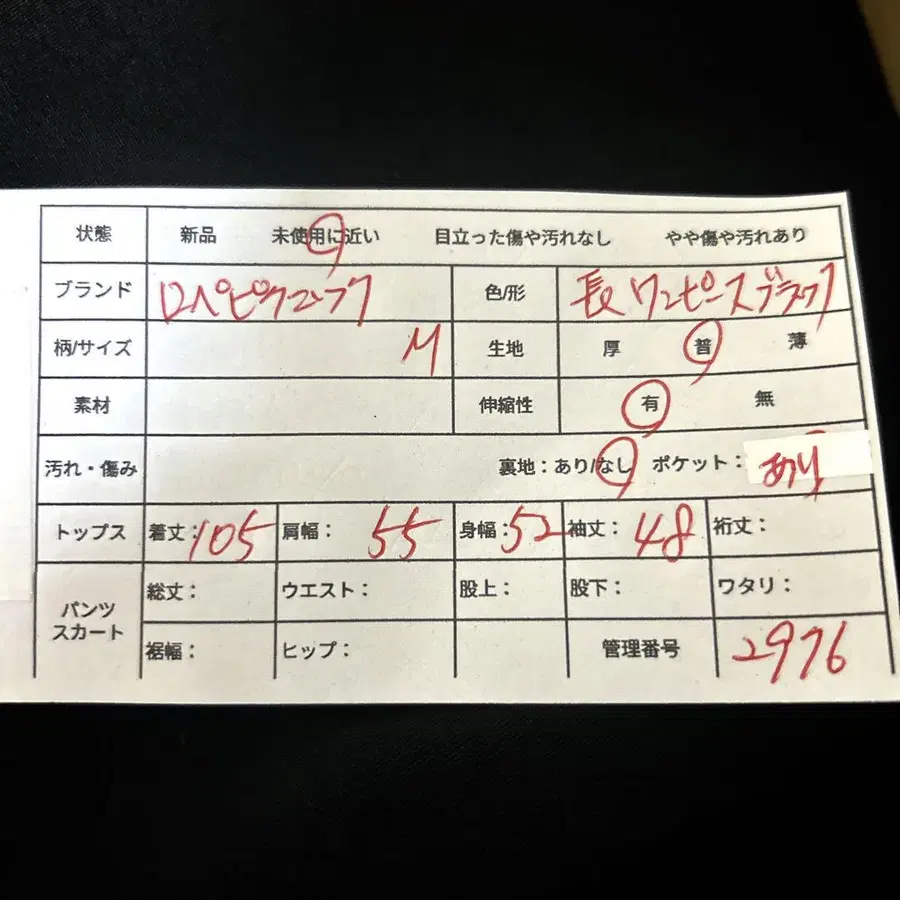 状態 新品 未使用に近い 目立った傷や汚れなし やや傷や汚れあり
ブランド ロペピクニック 色/形 長ワンピースブラック
柄/サイズ M 生地 厚 普 薄
素材 伸縮性 有 無
汚れ・傷み 裏地：あり/なし ポケット： あり
トップス 着丈：105 肩幅： 55 身幅：52 袖丈： 48 裄丈：
パンツ スカート 総丈： ウエスト： 股上： 股下： ワタリ：
裾幅： ヒップ： 管理番号 2976